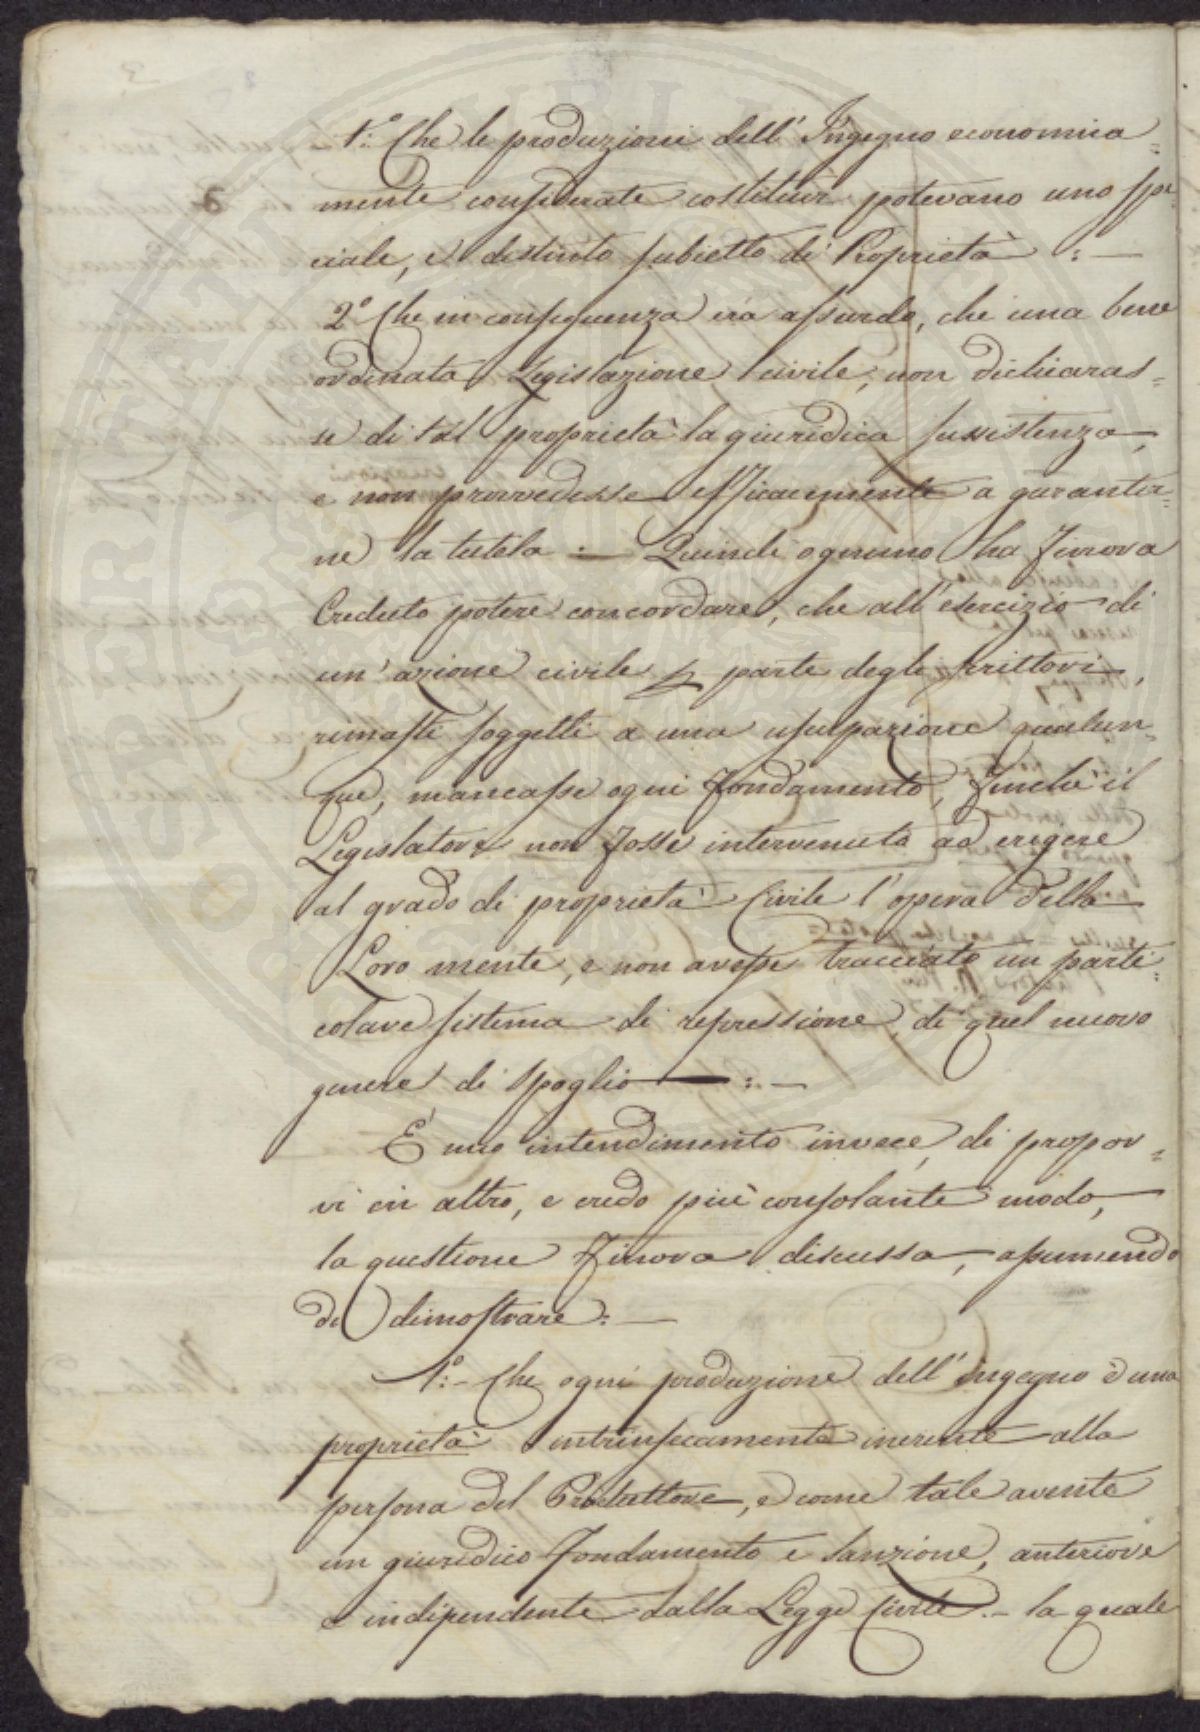 1.° Che le produzioni dell'Ingegno economica=
mente considerate costituir potevano uno spe=
ciale, e distinto subietto di Proprietà :—
2° Che in conseguenza era assurdo, che una bene
ordinata Legislazione civile, non dichiaras=
se di tal proprietà la giuridica sussistenza,
e non provvedesse efficacemente a garantir=
ne la tutela :— Quindi ognuno ha finora
Creduto potere concordare, che all'esercizio di
un'azione civile p parte degli scrittori,
rimasti soggetti a una usurpazione qualun=
que, mancasse ogni fondamento, finchè il
Legislatore non fosse intervenuto ad eregere
al grado di proprietà Civile l'opera della
Loro mente, e non avesse tracciato un parti=
colare sistema di repressione di quel nuovo
genere di spoglio — : —
È mio intendimento invece, di propor=
vi in altro, e credo più consolante modo,
la questione finora discussa, assumendo
di dimostrare: —
1°:- Che ogni produzione dell'ingegno è una
proprietà intrinsecamente inerente alla
persona del Produttore, e come tale avente
un giuridico fondamento e sanzione, anteriore
e indipendente dalla Legge Civile. - la quale